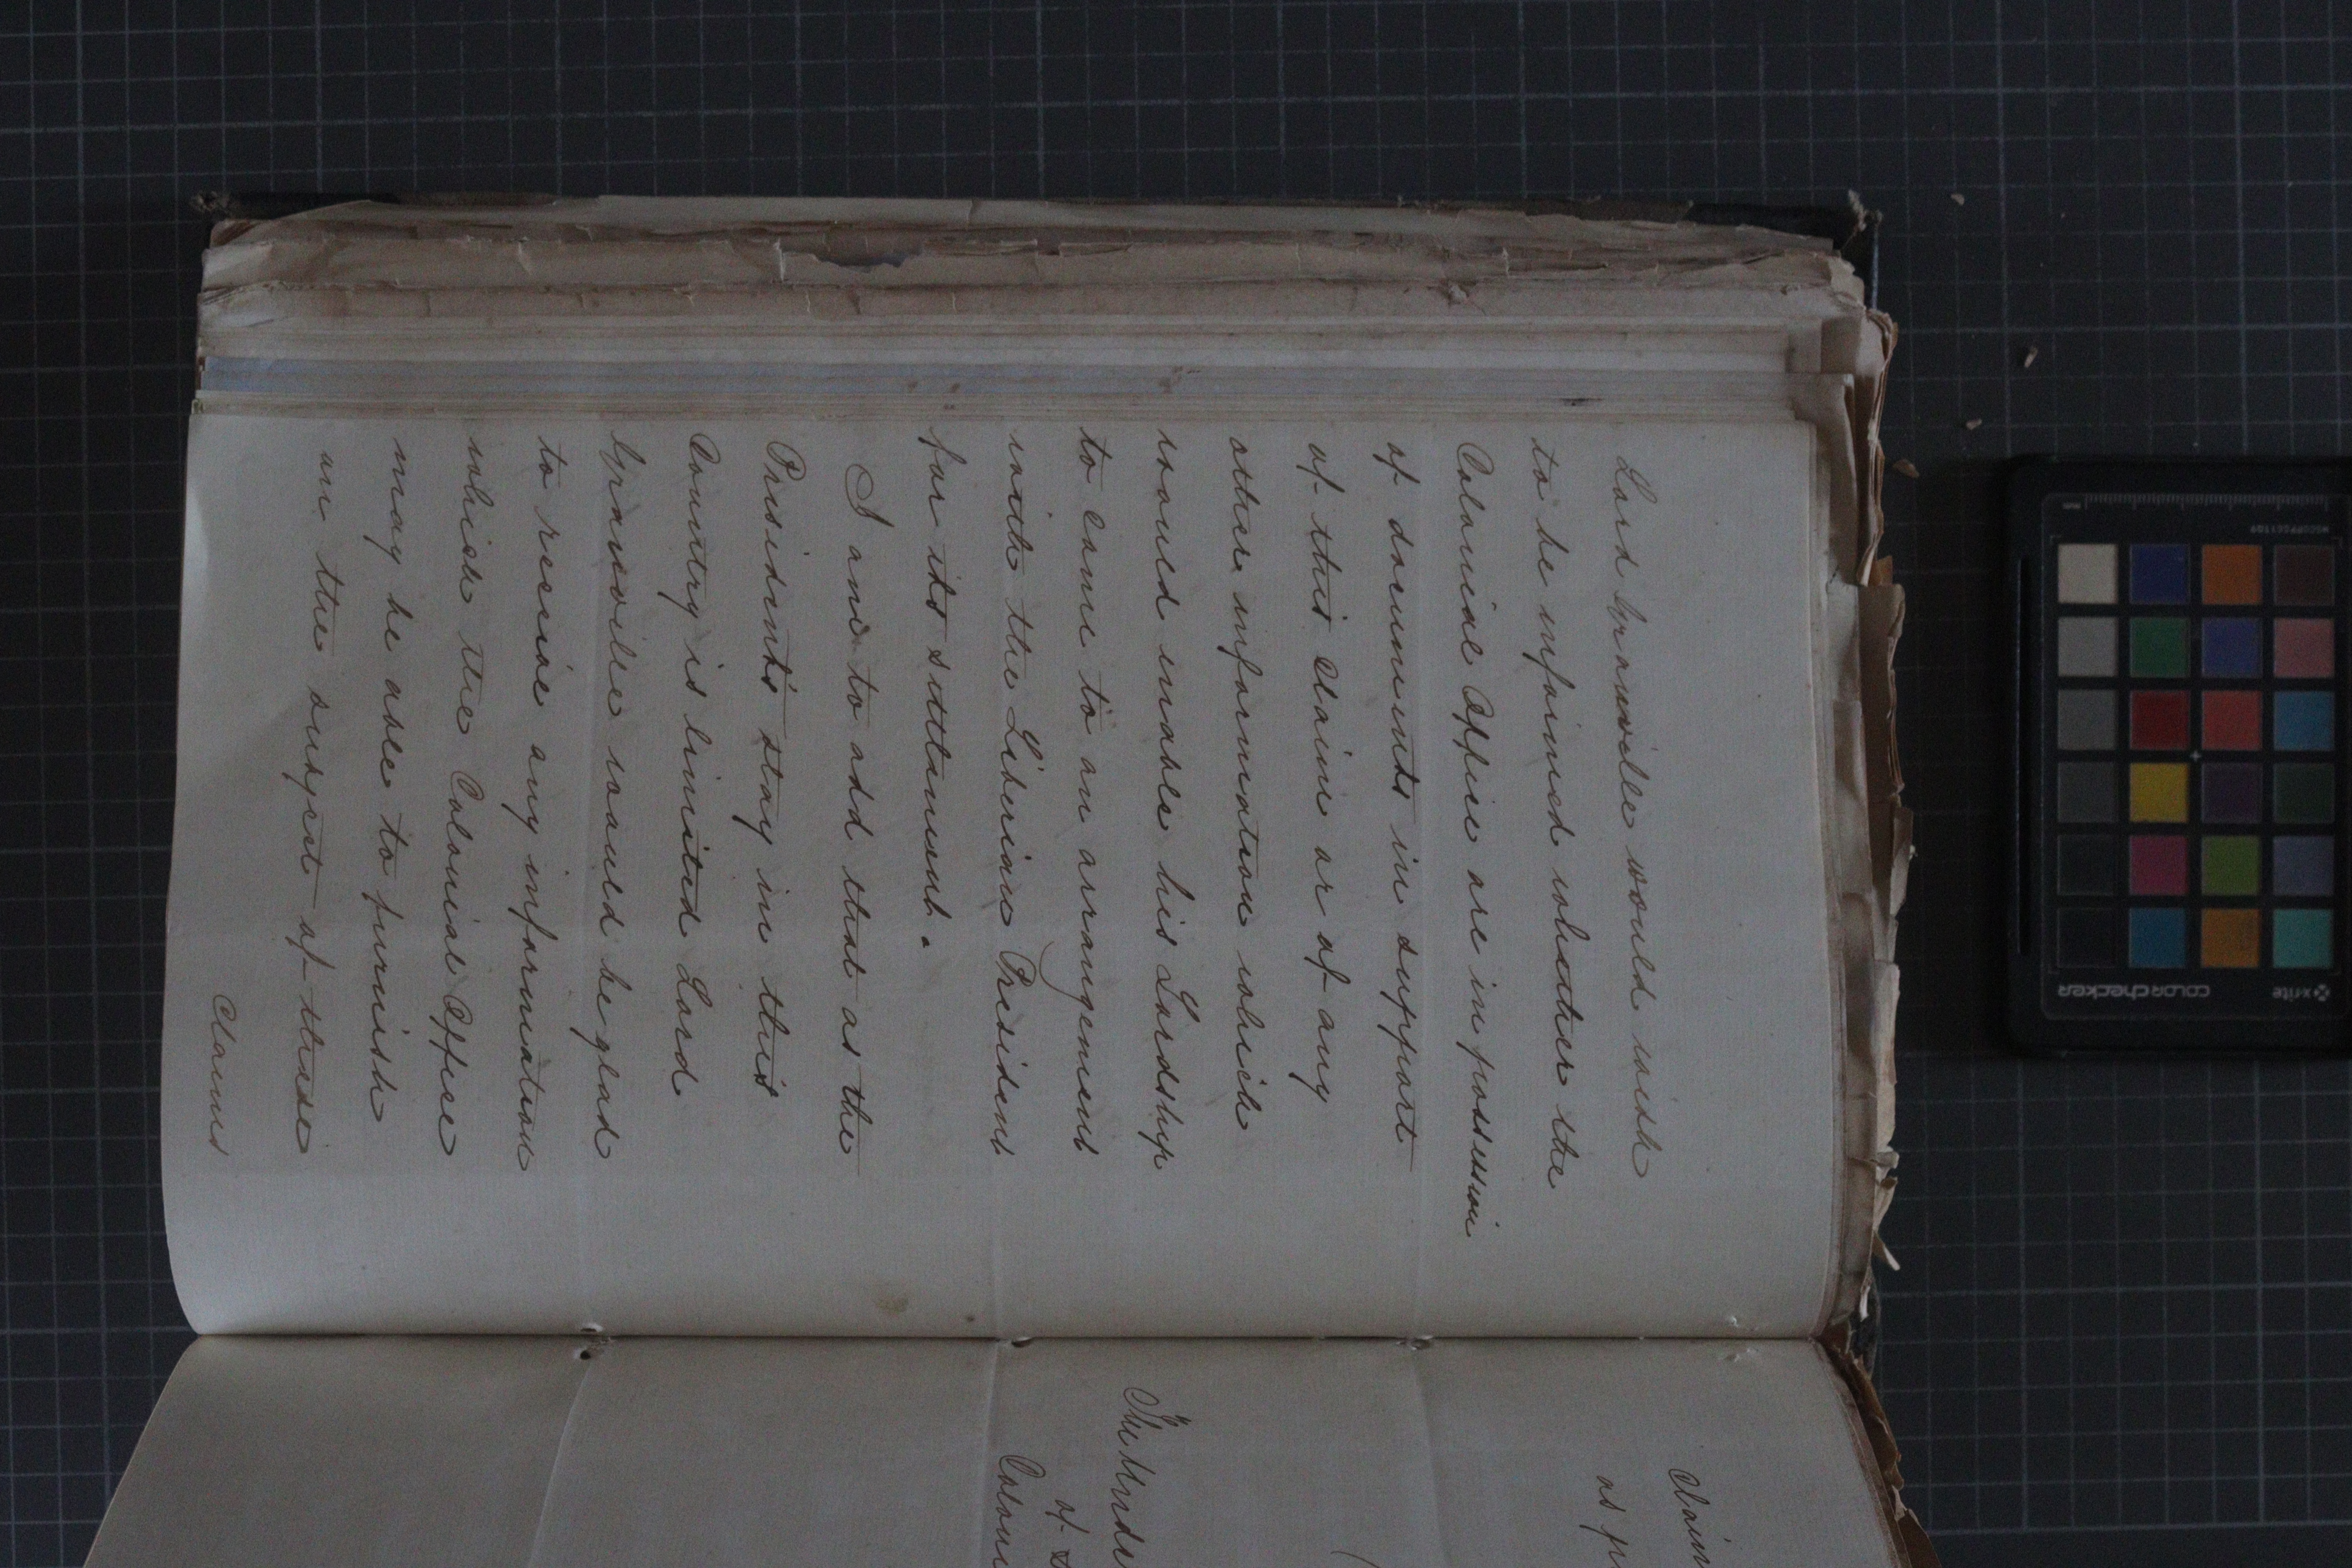 Lord Granville would wish
to be informed whether the
Colonial Office are in possession
of documents in support
of this claim or of any
other information which
would enable his Lordship
to come to an arrangement
with the Liberian President
for its settlement.
I am to add that as the
President's stay in this
Country is limited Lord
Granville would be glad
to receive any information
which the Colonial Office
may be able to furnish
on the subject of these
Claims
Claim
as
The Under
of S
Coloni
x-rite
colorchecker